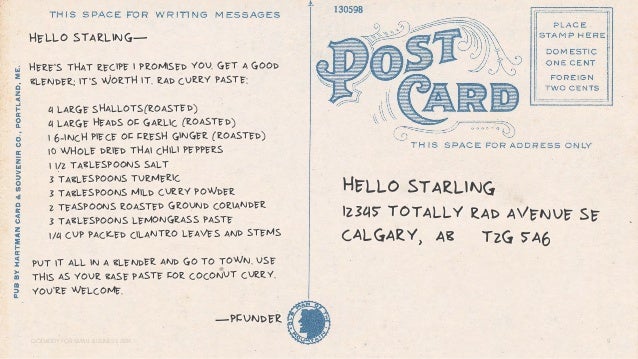 THIS SPACE FOR WRITING MESSAGES
HELLO STARLING—
HERE'S THAT RECIPE I PROMISED YOU. GET A GOOD
BLENDER; IT'S WORTH IT. RAD CURRY PASTE:
4 LARGE SHALLOTS(ROASTED)
4 LARGE HEADS OF GARLIC (ROASTED)
1 6-INCH PIECE OF FRESH GINGER (ROASTED)
10 WHOLE DRIED THAI CHILI PEPPERS
1 1/2 TABLESPOONS SALT
3 TABLESPOONS TURMERIC
3 TABLESPOONS MILD CURRY POWDER
2 TEASPOONS ROASTED GROUND CORIANDER
3 TABLESPOONS LEMONGRASS PASTE
1/4 CUP PACKED CILANTRO LEAVES AND STEMS
PUT IT ALL IN A BLENDER AND GO TO TOWN. USE
THIS AS YOUR BASE PASTE FOR COCONUT CURRY.
YOU'RE WELCOME.
—PFUNDER
PUB BY HARTMAN CARD & SOUVENIR CO., PORTLAND, ME.
130598
POST
CARD
PLACE
STAMP HERE
DOMESTIC
ONE CENT
FOREIGN
TWO CENTS
THIS SPACE FOR ADDRESS ONLY
HELLO STARLING
12345 TOTALLY RAD AVENUE SE
CALGARY, AB T2G 5A6
9